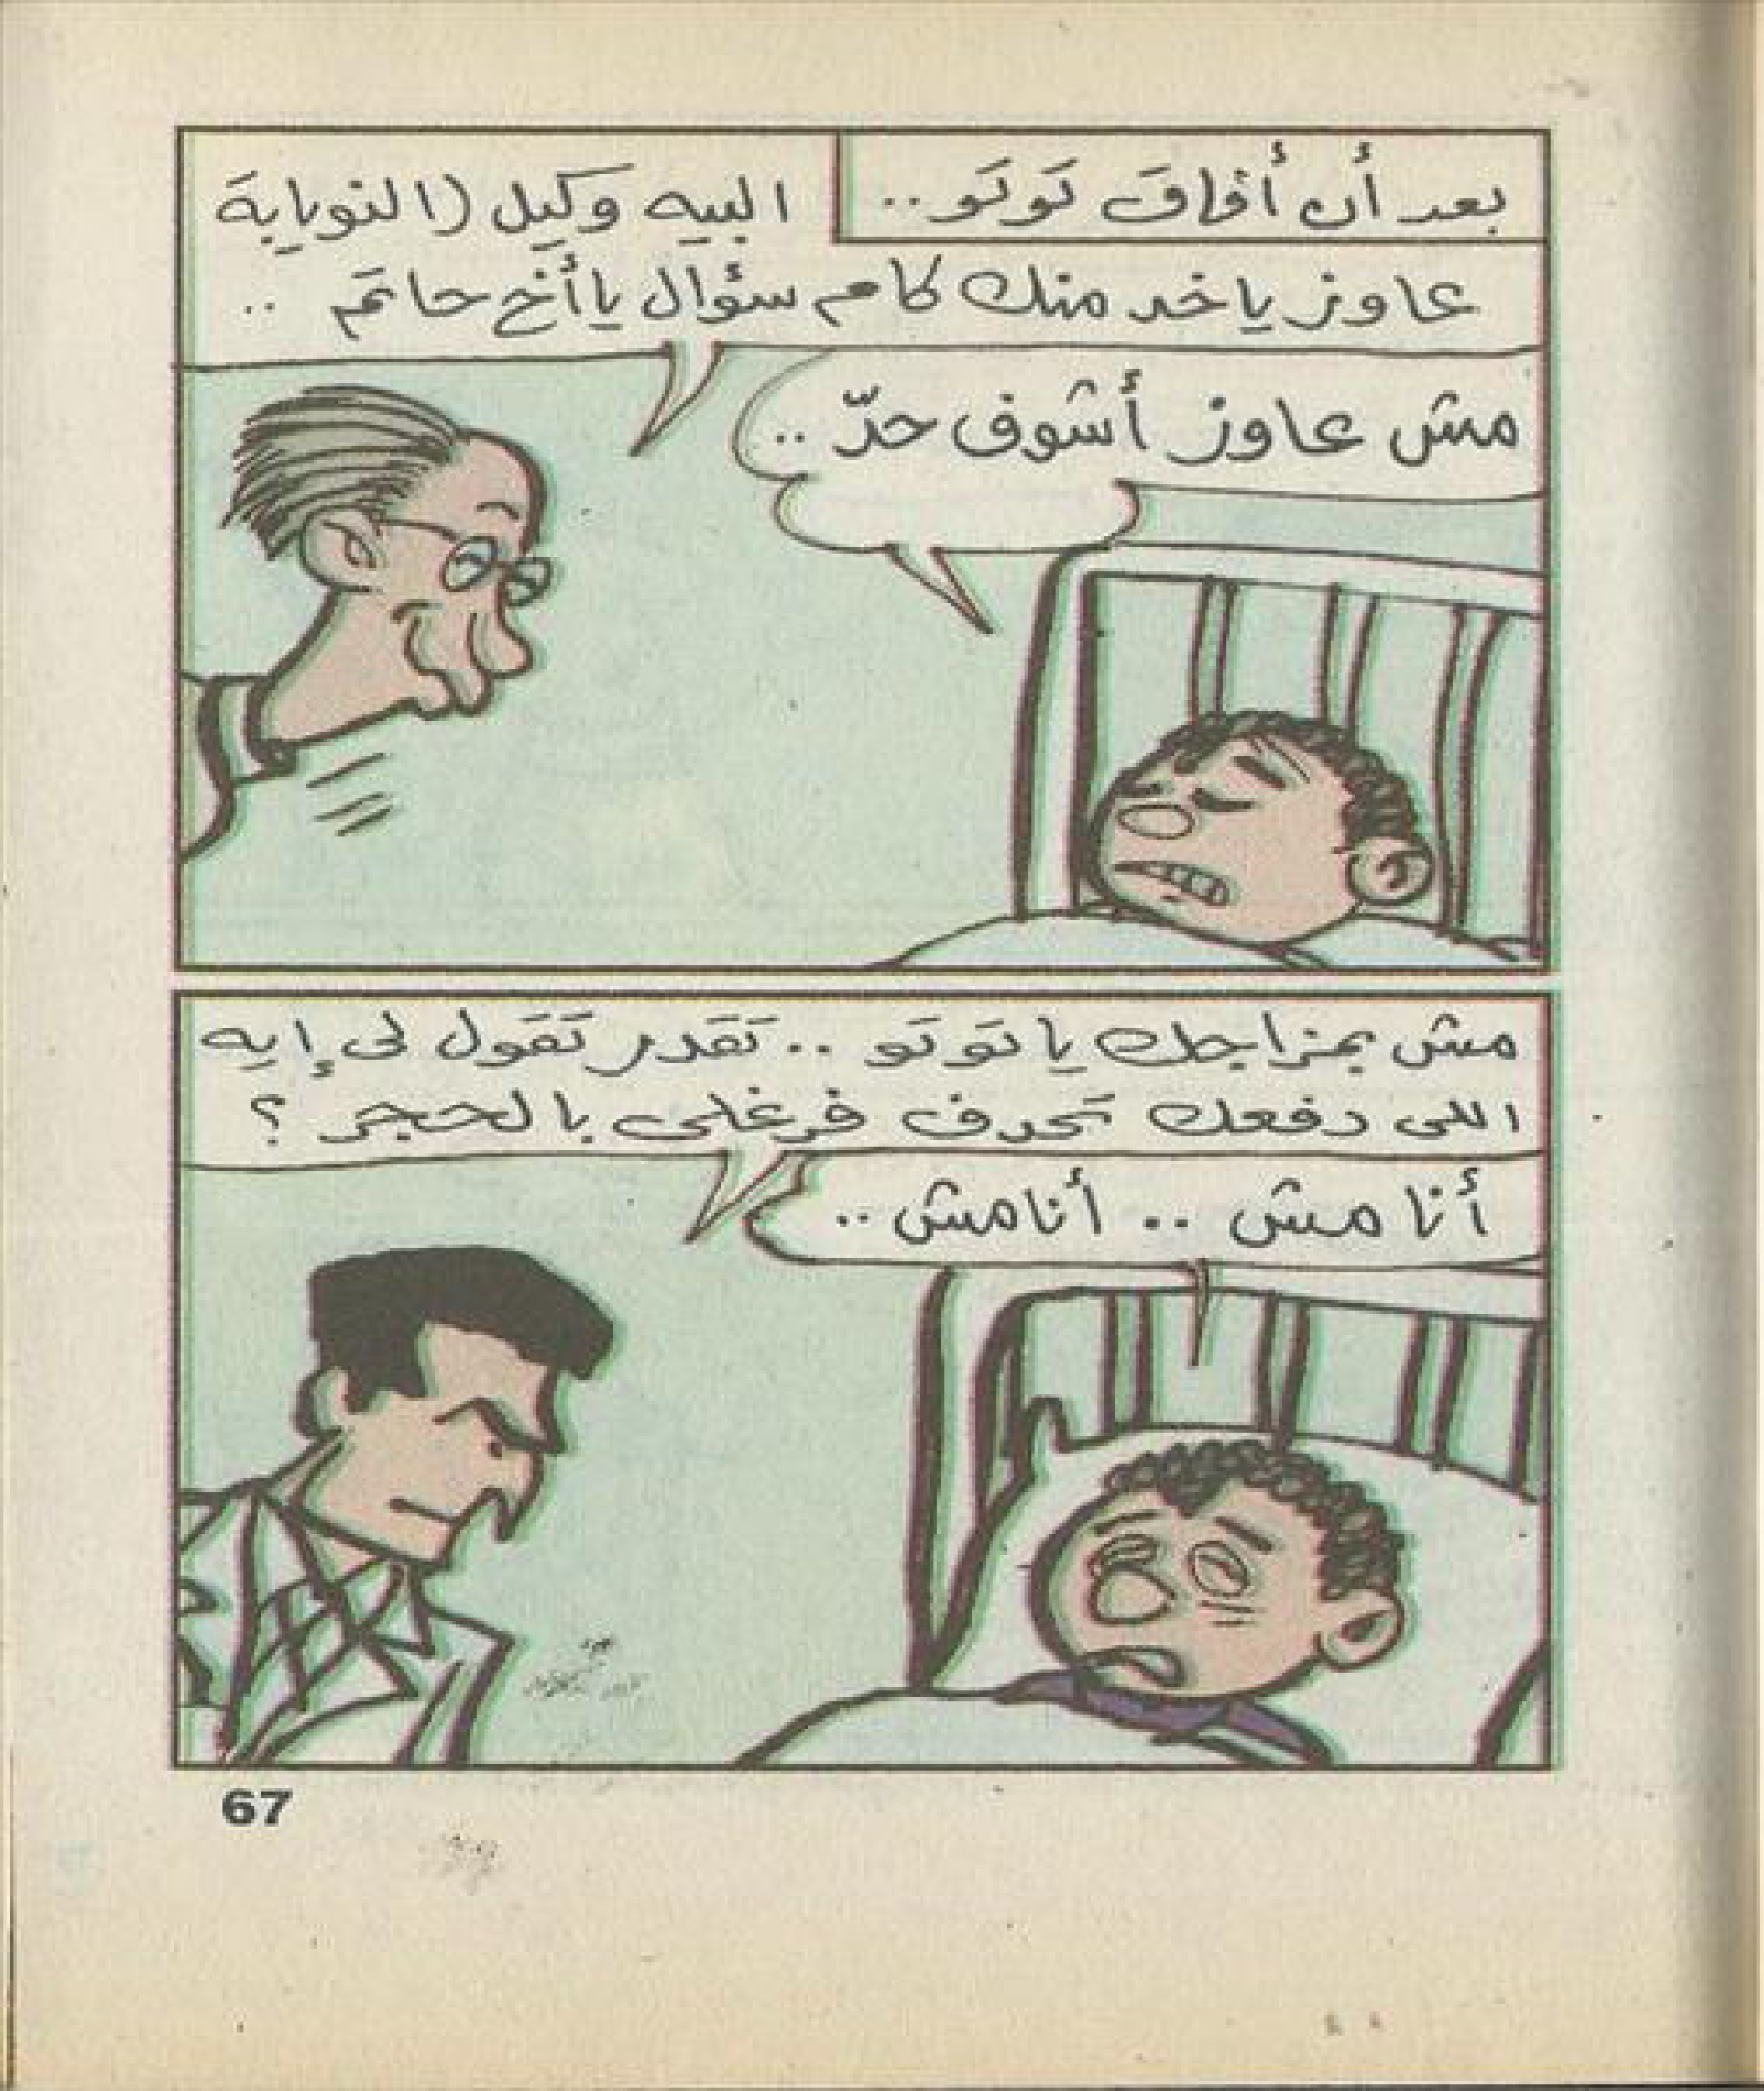 بعد أن أفاق توتو..
البيه وكيل النويابة
عاوز ياخد منك كام سؤال يا أخ حاتم ..
مش عاوز أشوف حدّ ..
مش بمزاجك يا توتو .. تقدر تقول لى إيه
اللى دفعك تحدف فرغلى بالحجر ؟
أنا مش .. أنا مش ..
67